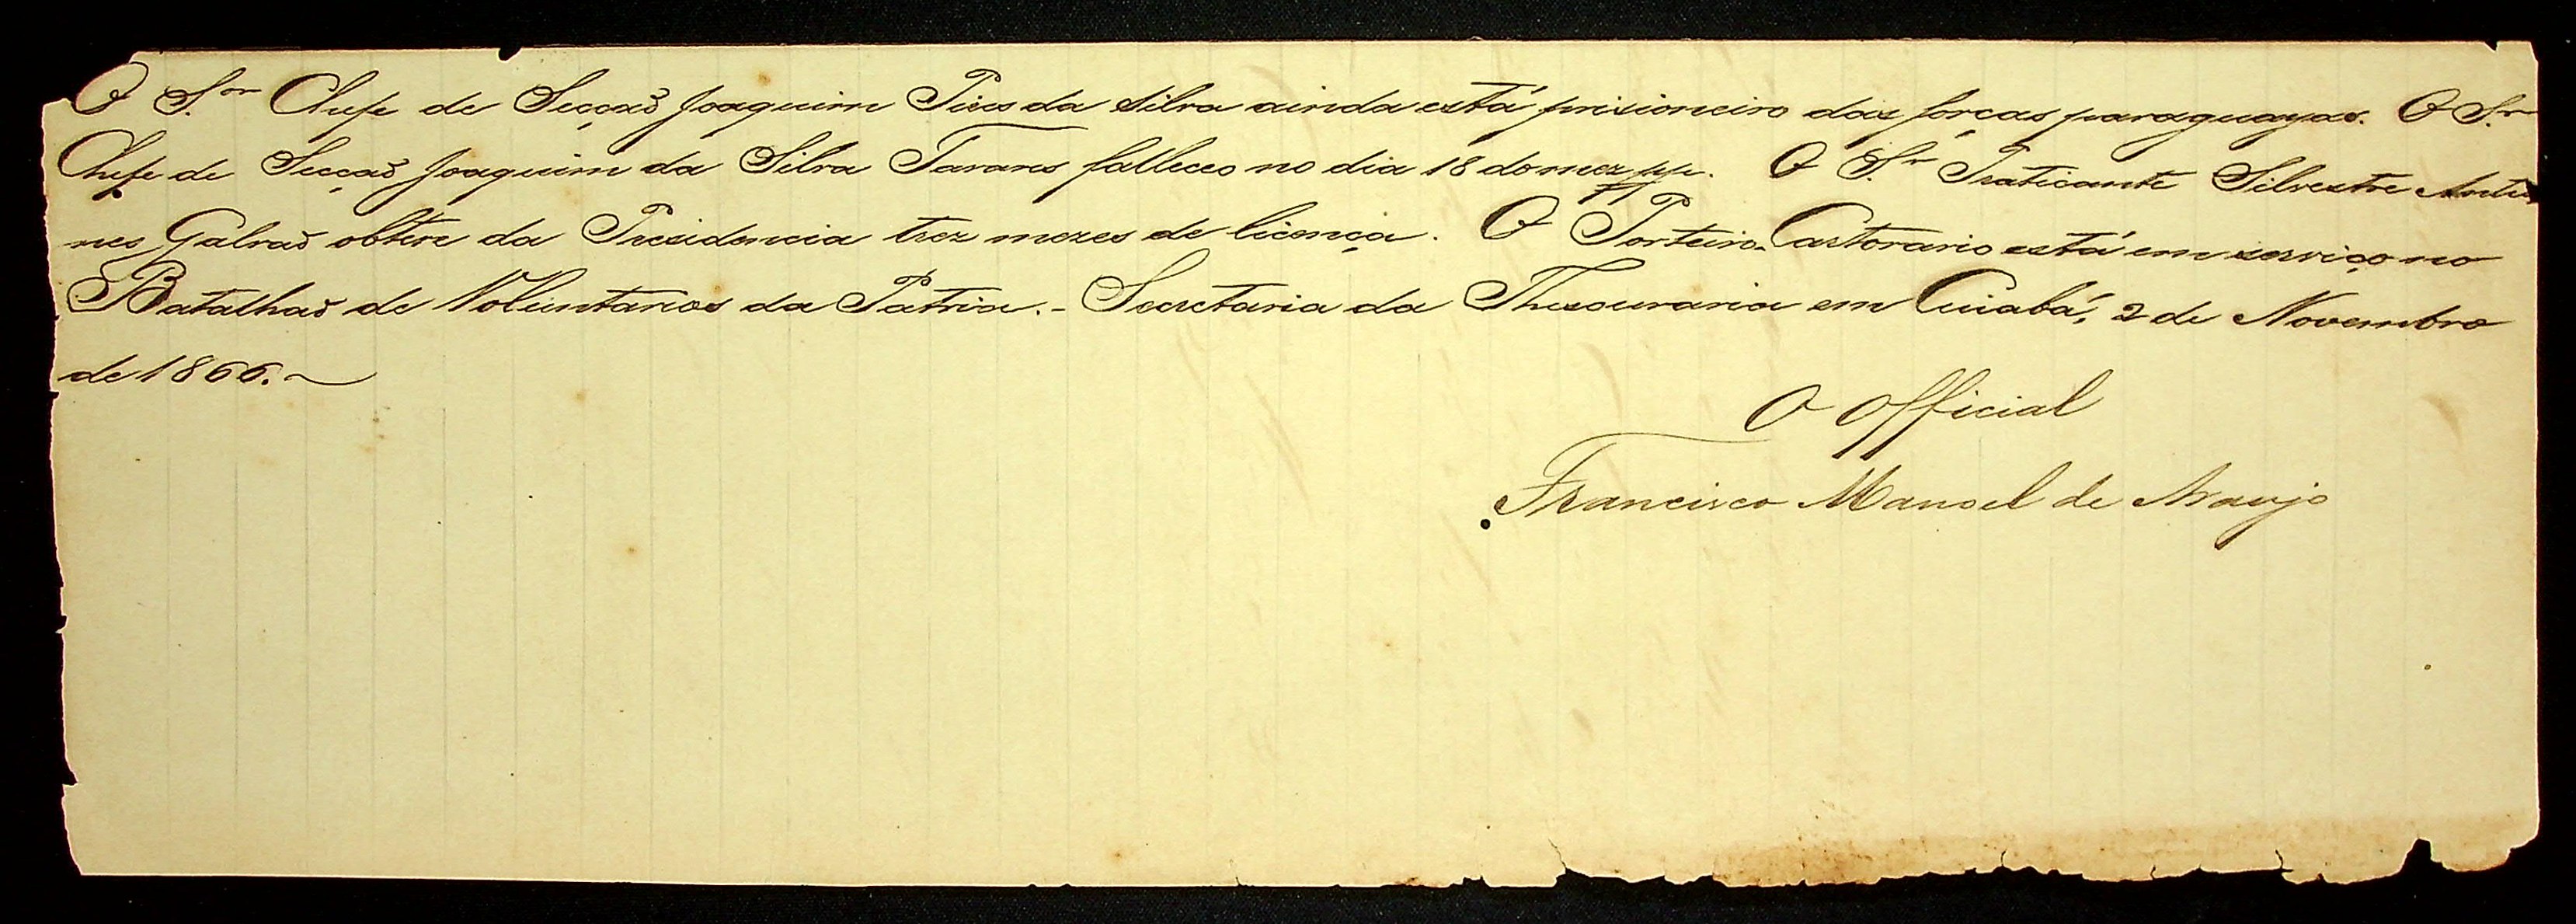 O S.or Chefe de Secção Joaquim Pires da Silva ainda está prisioneiro das forças paraguayas. O S.r
Chefe de Secção Joaquim da Silva Tavares falleceo no dia 18 do mez pp. O S.r Praticante Silvestre Antu
nes Galvão obteve da Presidencia trez mezes de licença. O Porteiro Cartorario está em serviço no
Batalhão de Voluntarios da Patria. - Secretaria da Thesouraria em Cuiabá, 2 de Novembro
de 1866. ~
O Official
Francisco Manoel de Araujo